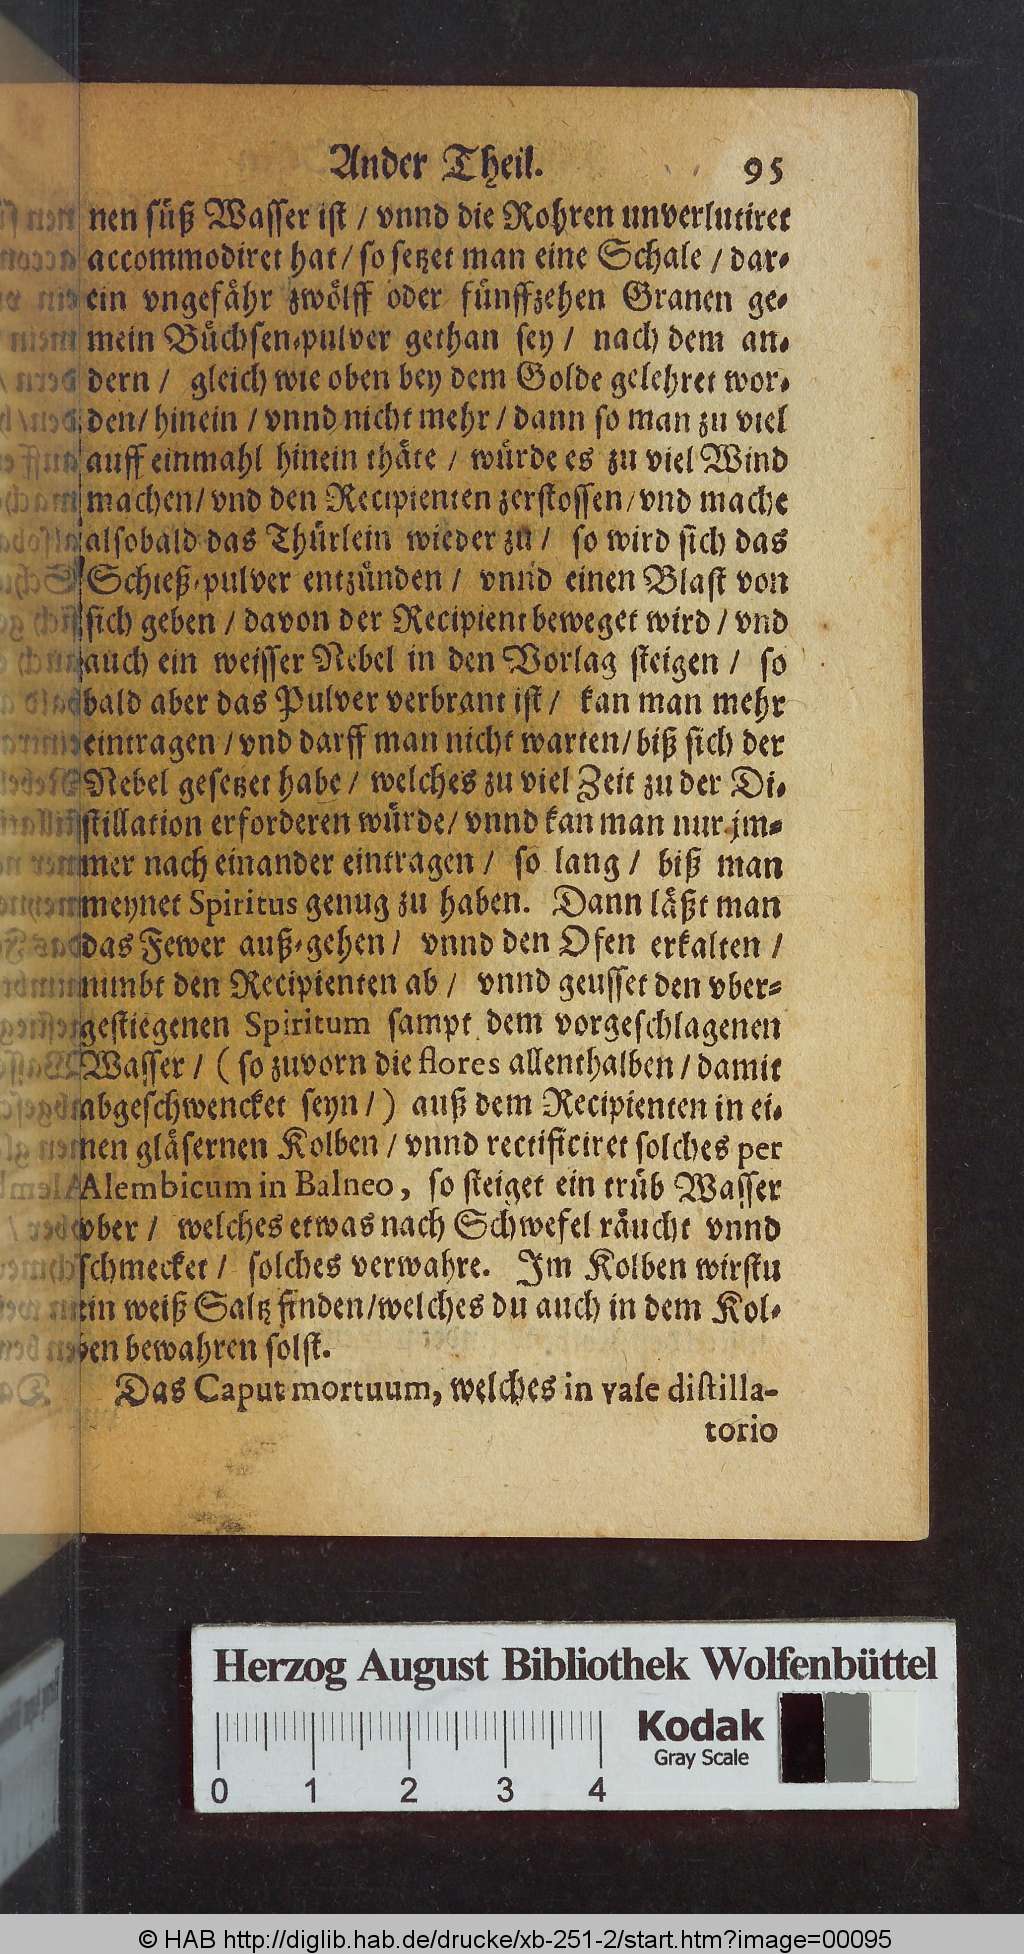 Ander Theil. 95
nen süß Wasser ist / vnnd die Rohren unverlutiret
accommodiret hat / so setzet man eine Schale / dar-
ein vngefähr zwölff oder fünffzehen Granen ge-
mein Büchsen-pulver gethan sey / nach dem an-
dern / gleich wie oben bey dem Golde gelehret wor-
den / hinein / vnnd nicht mehr / dann so man zu viel
auff einmahl hinein thäte / würde es zu viel Wind
machen / vnd den Recipienten zerstossen / vnd mache
alsobald das Thürlein wieder zu / so wird sich das
Schieß-pulver entzünden / vnnd einen Blast von
sich geben / davon der Recipient beweget wird / vnd
auch ein weisser Nebel in den Vorlag steigen / so
bald aber das Pulver verbrant ist / kan man mehr
eintragen / vnd darff man nicht warten / biß sich der
Nebel gesetzet habe / welches zu viel Zeit zu der Di-
stillation erforderen würde / vnnd kan man nur jm-
mer nach einander eintragen / so lang / biß man
meynet Spiritus genug zu haben. Dann läßt man
das Fewer auß-gehen / vnnd den Ofen erkalten /
nimbt den Recipienten ab / vnnd geusset den vber-
gestiegenen Spiritum sampt dem vorgeschlagenen
Wasser / ( so zuvorn die flores allenthalben / damit
abgeschwencket seyn / ) auß dem Recipienten in ei-
nen gläsernen Kolben / vnnd rectificiret solches per
Alembicum in Balneo, so steiget ein trüb Wasser
vber / welches etwas nach Schwefel räucht vnnd
schmecket / solches verwahre. Im Kolben wirstu
ein weiß Saltz finden / welches du auch in dem Kol-
ben bewahren solst.
Das Caput mortuum, welches in vase distilla-
torio
Herzog August Bibliothek Wolfenbüttel
Kodak
Gray Scale
0 1 2 3 4
© HAB http://diglib.hab.de/drucke/xb-251-2/start.htm?image=00095